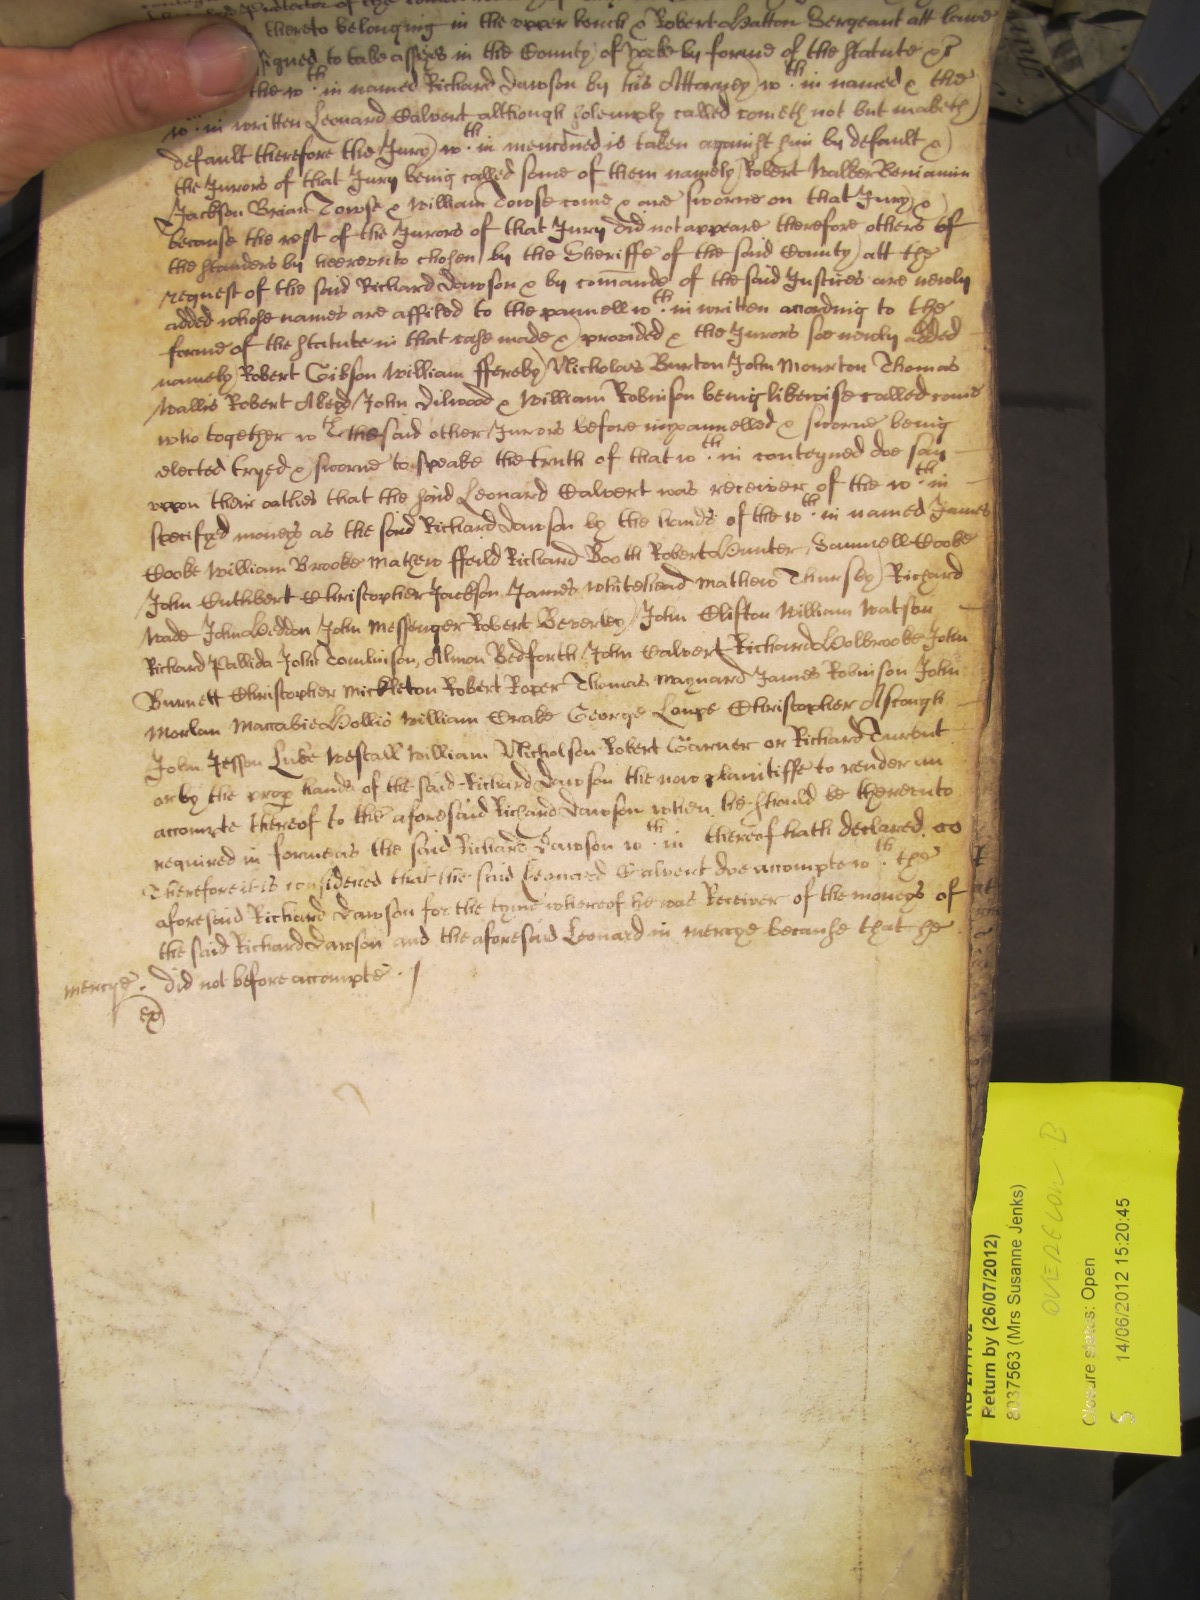 Protector of the
thereto belonging in the upper bench & Robert Hatton Sergeant att lawe
signed to take assizes in the County of Yorke by forme of the statute &c
the wth.in named Richard Dawson by his Attorney wth.in named & the
wth.in written Leonard Calvert although solemply called cometh not but maketh
default therefore the Jury wth.in mencõned is taken against him by default &
the Jurors of that Jury being called some of them namely Robert Walker Beniamin
Jackson Brian Towse & William Towse come & are sworne on that Jury &
because the rest of the Jurors of that Jury did not appeare therefore others of
the standers by hereunto chosen by the Sheriffe of the said County att the
request of the said Richard Dawson & by comãnde of the said Justices are newly
added whose names are affiled to the pannell wth.in written according to the
forme of the statute in that case made & provided & the Jurors soe newly added
namely Robert Gibson William ffereby Nicholas Burton John Mourton Thomas
Wallis Robert John Dilwood & William Robinson being likewise called come
who together wth the said other Jurors before impannelled & sworne being
elected tryed & sworne to speake the truth of that wth.in conteyned doe say
upon their oathes that the said Leonard Calvert was receiver of the wth.in
specifyed moneys as the said Richard Dawson by the hands of the wth.in named James
Cooke William Brooke Mathew ffeild Richard Booth Robert Hunter Samuell Cooke
John Cuthbert Christopher Jackson James Whitehead Mathew Thursby Richard
Wade John Heddon John Messenger Robert Beverley John Clifton William Watson
Richard Pallida John Tomlinson Almon Bedforth John Calvert Richard Holbrooke John
Burnett Christopher Mickleton Robert Roper Thomas Maynard James Robinson John
Morlan Maccabie Hollis William Drake George Loupe Christopher Ascough
John Jesson Luke Westall William Nicholson Robert Garner or Richard Turent
or by the prop hands of the said Richard Dawson the now plaintiffe to render an
accompte thereof to the aforesaid Richard Dawson when he should be thereunto
required in forme as the said Richard Dawson wth.in thereof hath declared
Therefore it is considered that the said Leonard Calvert doe accompte wth. the
aforesaid Richard Dawson for the tyme whereof he was Receiver of the moneys of
the said Richard Dawson and the aforesaid Leonard in mercye because that he
mercye. did not before accompte.
ex
Return by (26/07/2012)
8037563 (Mrs Susanne Jenks)
OVERELON B
Closure status: Open
14/06/2012 15:20:45
S